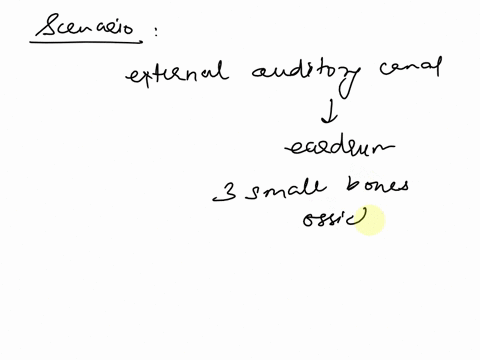 Scenario :
external auditory canal
↓
eardrum
3 small bones
ossic